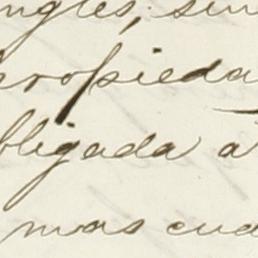 ngles, sin
propieda
bligada a
mas cua